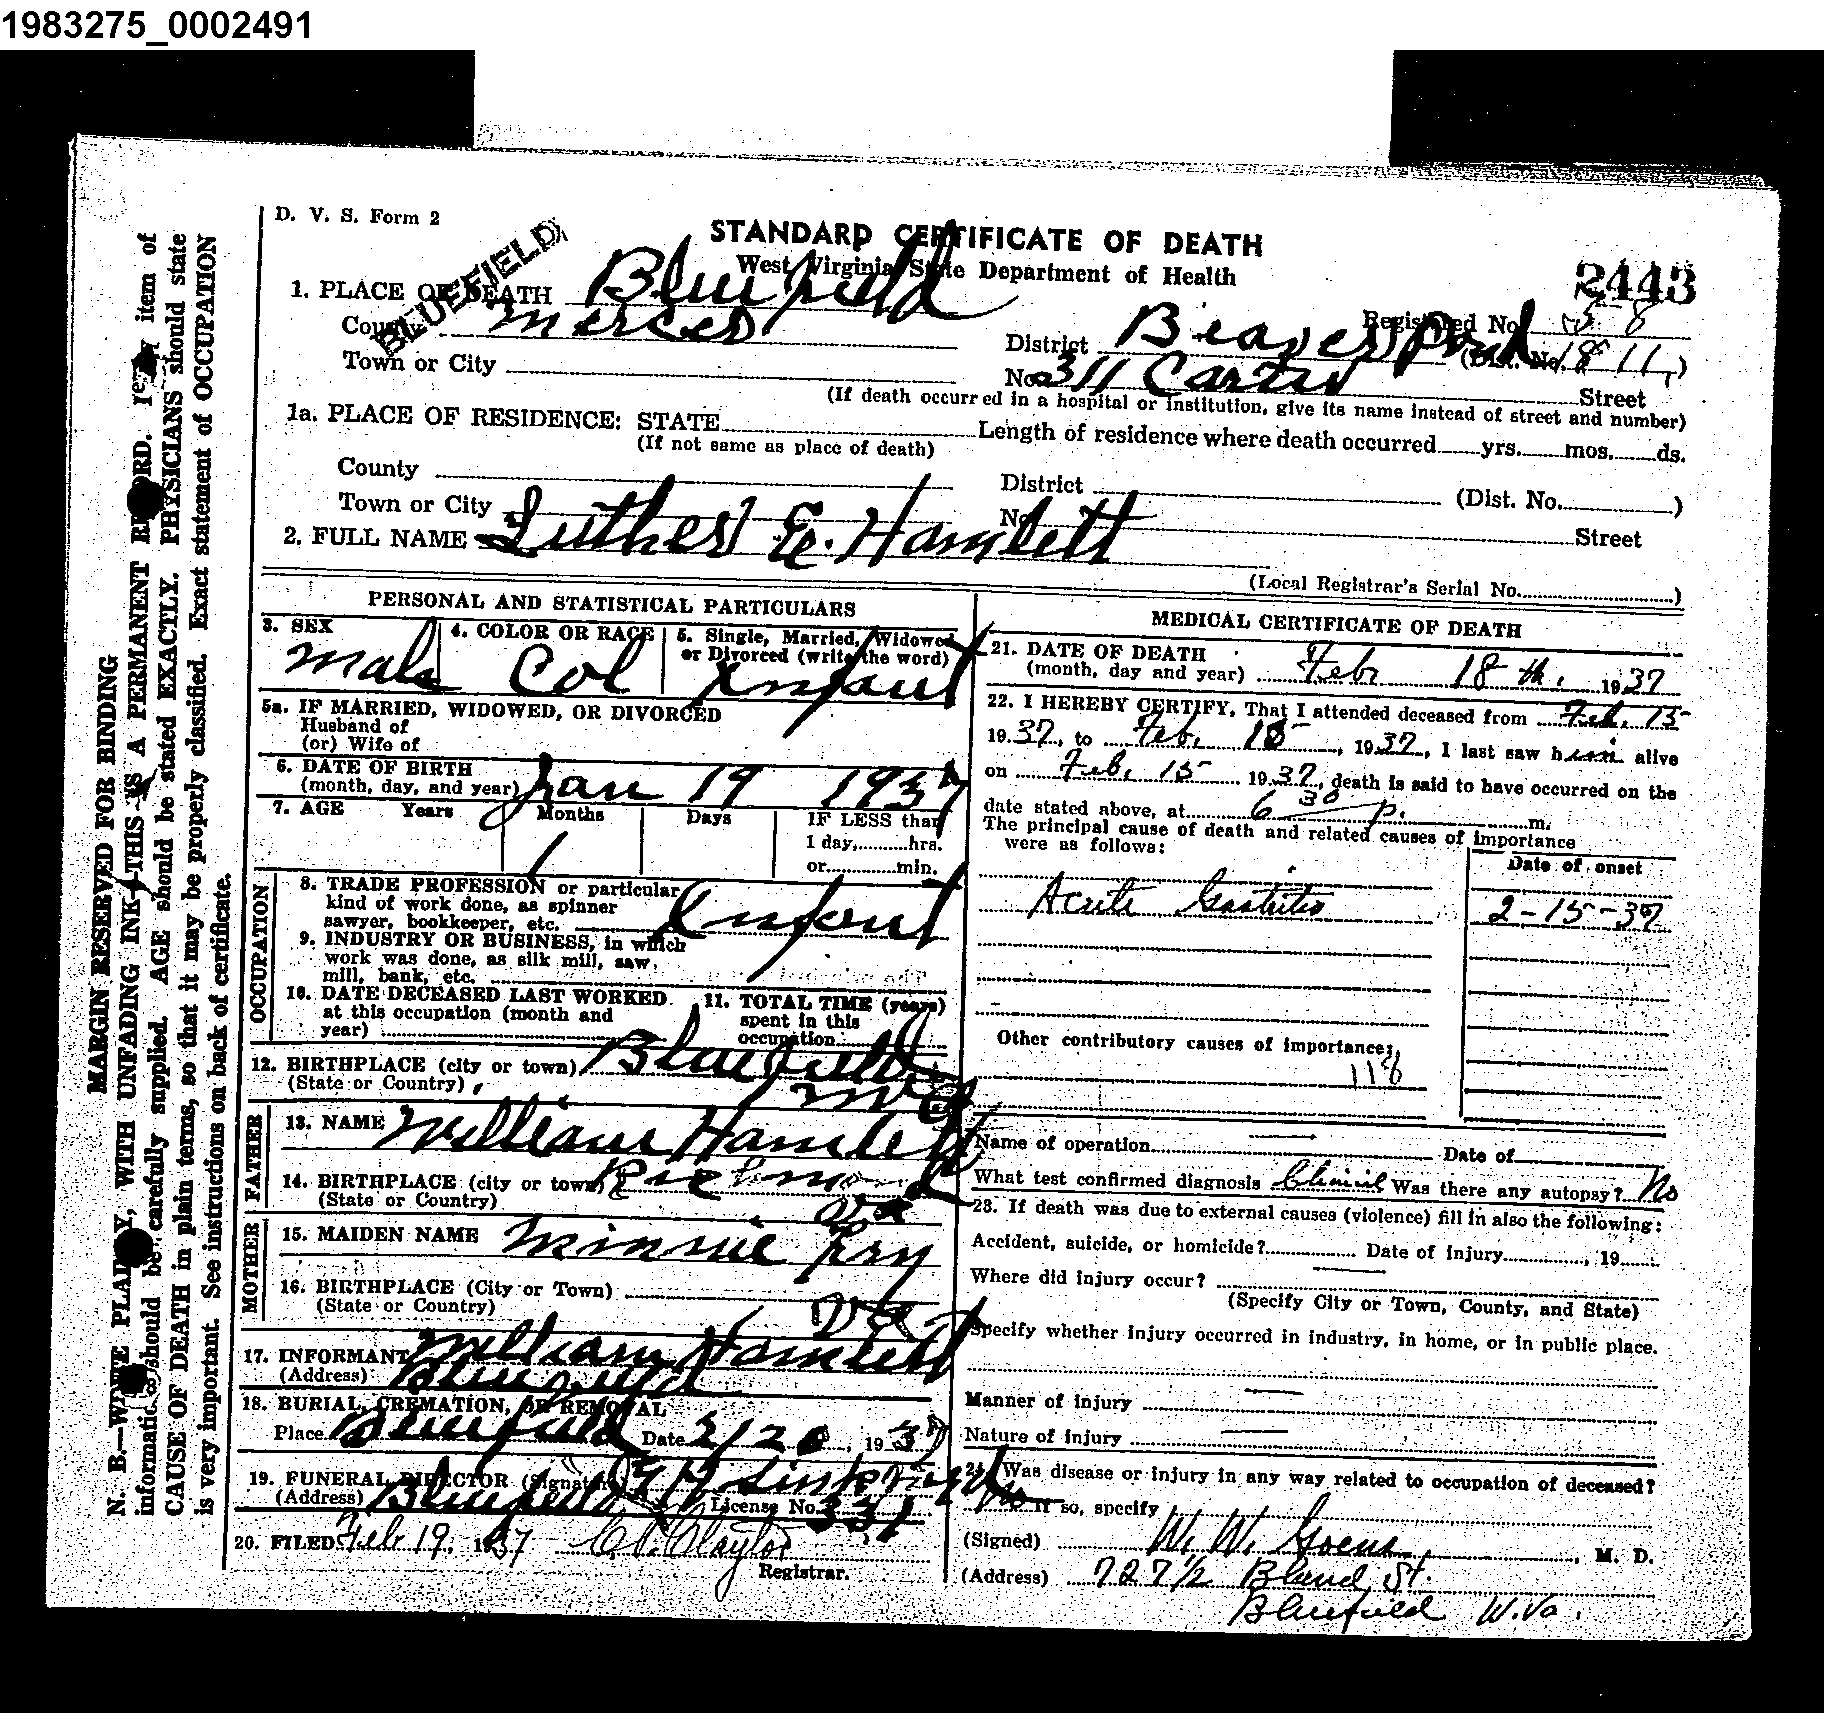 1983275_0002491
D. V. S. Form 2
BLUEFIELD
STANDARD CERTIFICATE OF DEATH
West Virginia State Department of Health
2443
1. PLACE OF DEATH Bluefield
Registered No. 58
County Mercer
District Beaver Pond (Dist. No. 1811)
Town or City
No. 311 Carter Street
(If death occurred in a hospital or institution, give its name instead of street and number)
1a. PLACE OF RESIDENCE: STATE Length of residence where death occurred yrs. mos. ds.
(If not same as place of death)
County District (Dist. No. )
Town or City No. Street
2. FULL NAME Luther E. Hamlett
(Local Registrar's Serial No. )
PERSONAL AND STATISTICAL PARTICULARS
3. SEX Male
4. COLOR OR RACE Col
5. Single, Married, Widowed
or Divorced (write the word) Infant
5a. IF MARRIED, WIDOWED, OR DIVORCED
Husband of
(or) Wife of
6. DATE OF BIRTH
(month, day, and year) Jan 19 1937
7. AGE Years Months Days IF LESS than
1 day, hrs.
1 or min.
OCCUPATION
8. TRADE PROFESSION or particular
kind of work done, as spinner
sawyer, bookkeeper, etc. Infant
9. INDUSTRY OR BUSINESS, in which
work was done, as silk mill, saw,
mill, bank, etc.
10. DATE DECEASED LAST WORKED
at this occupation (month and
year)
11. TOTAL TIME (years)
spent in this
occupation
12. BIRTHPLACE (city or town) Bluefield
(State or Country)
FATHER
13. NAME William Hamlett
14. BIRTHPLACE (city or town) Richmond
(State or Country) Va
MOTHER
15. MAIDEN NAME Minnie
16. BIRTHPLACE (City or Town)
(State or Country) Va
17. INFORMANT William Hamlett
(Address) Bluefield
18. BURIAL, CREMATION, OR REMOVAL
Place Bluefield Date 2/20, 1937
19. FUNERAL DIRECTOR (Signature)
(Address) Bluefield License No. 331
20. FILED Feb 19, 1937 C. P. Claytor
Registrar.
MEDICAL CERTIFICATE OF DEATH
21. DATE OF DEATH
(month, day and year) Feb 18 th. 1937
22. I HEREBY CERTIFY, That I attended deceased from Feb. 15
1937, to Feb. 18, 1937, I last saw him alive
on Feb. 15 1937, death is said to have occurred on the
date stated above, at 6 30 p. m.
The principal cause of death and related causes of importance
were as follows:
Date of onset
Acute Gastritis 2-15-37
Other contributory causes of importance:
118
Name of operation — Date of
What test confirmed diagnosis Clinical Was there any autopsy? No
23. If death was due to external causes (violence) fill in also the following:
Accident, suicide, or homicide? Date of injury , 19
Where did injury occur? —
(Specify City or Town, County, and State)
Specify whether injury occurred in industry, in home, or in public place.
Manner of injury —
Nature of injury —
24. Was disease or injury in any way related to occupation of deceased?
No If so, specify
(Signed) W. W. Goens, M. D.
(Address) 727 1/2 Bland St.
Bluefield W. Va.
MARGIN RESERVED FOR BINDING
N. B.—WRITE PLAINLY, WITH UNFADING INK—THIS IS A PERMANENT RECORD. item of
information should be carefully supplied. AGE should be stated EXACTLY. PHYSICIANS should state
CAUSE OF DEATH in plain terms, so that it may be properly classified. Exact statement of OCCUPATION
is very important. See instructions on back of certificate.